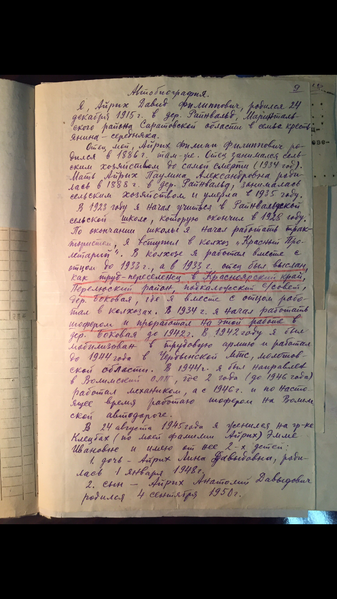 Автобиография.
Я, Айрих Давид Филиппович, родился 24
декабря 1915 г. в дер. Райнвальд, Мариентал-
ского района Саратовской области в семье кресть
янина-середняка.
Отец мой, Айрих Филипп Филиппович ро-
дился в 1886 г. там-же. Отец занимался сель-
ским хозяйством до самой смерти (1934 год).
Мать Айрих Паулина Александровна роди-
лась в 1888 г. в дер. Райнвальд, занималась
сельским хозяйством и умерла в 1935 году.
В 1923 году я начал учиться в Райнвальдской
сельской школе, которую окончил в 1928 году.
По окончании школы я начал работать трак-
тористом, я вступил в колхоз "Красный Про-
летарий". В колхозе я работал вместе с
отцом до 1933 г., а в 1933 г. отец был выслан,
как труд-переселенец в Красноярский край,
район, с/совет,
дер. Боковая, где я вместе с отцом рабо-
тал в колхозах. В 1934 г. я начал работать
шофером и проработал на этой работе в
дер. Боковая до 1942 г. В 1942 году я был
мобилизован в трудовую армию и работал
до 1944 года в МТС, Молотов-
ской области. В 1944 г. я был направлен
в где 2 года (до 1946 года)
работал механиком, а с 1946 г. и по насто-
ящее время работаю шофером на
ской автодороге.
В 24 августа 1945 года я женился на гр-ке
(по моей фамилии Айрих) Эмме
Ивановне и имею от нее 2-х детей:
1. дочь - Айрих Лина Давыдовна, роди-
лась 1 января 1948 г.
2. сын - Айрих Анатолий Давыдович
родился 4 сентября 1950 г.